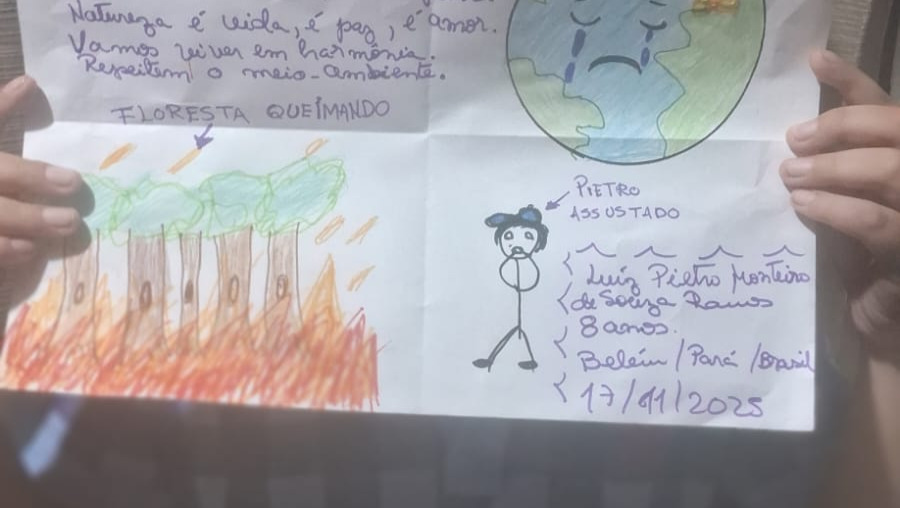 Natureza é vida, é paz, é amor.
Vamos viver em harmônia.
Respeitem o meio-ambiente.
FLORESTA QUEIMANDO
PIETRO
ASSUSTADO
Luiz Pietro Monteiro
de Souza Ramos
8 anos.
Belém/Pará/Brasil
17/11/2025